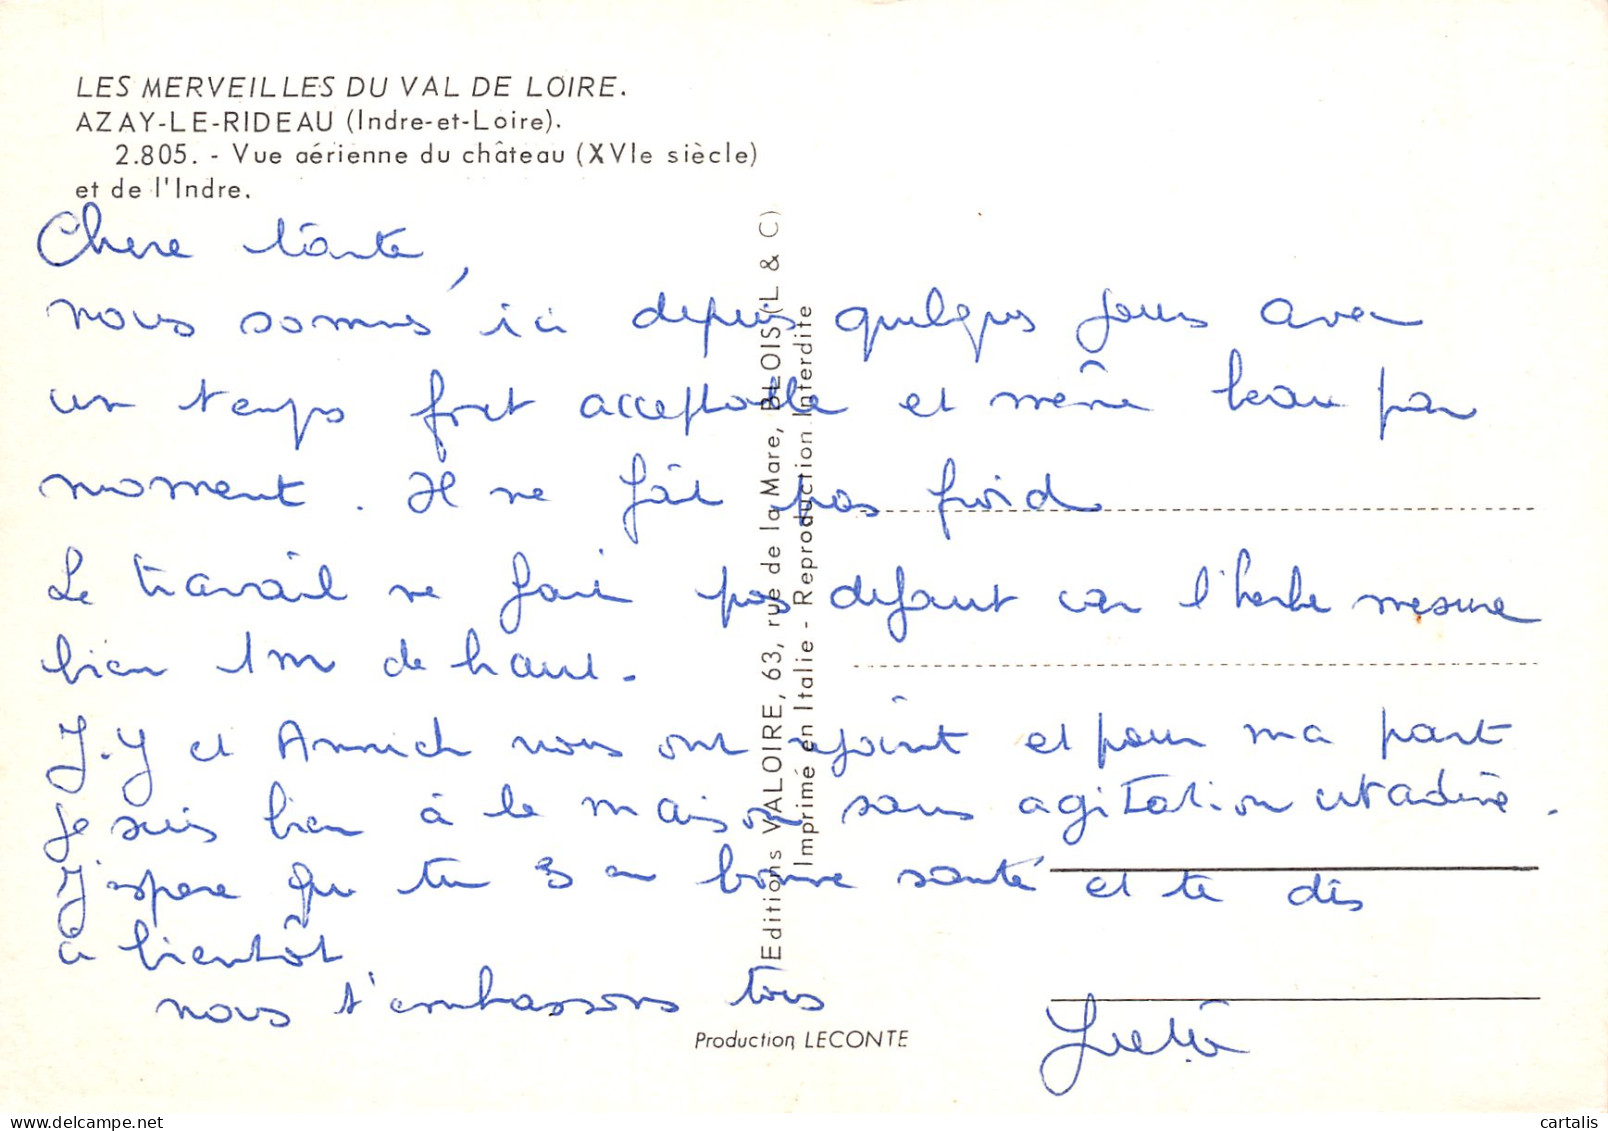 LES MERVEILLES DU VAL DE LOIRE.
AZAY-LE-RIDEAU (Indre-et-Loire).
2.805. - Vue aérienne du château (XVIe siècle)
et de l'Indre.
Chere tante,
nous sommes ici depuis quelques jours avec
un temps fort acceptable et même beau par
moment. Il ne fait pas froid
Le travail ne fait pas defaut car l'herbe mesure
bien 1m de haut.
J.Y et Annick nous ont rejoint et pour ma part
je suis bien à la maison sans agitation citadine.
J'espere que tu es en bonne santé et te dis
à bientôt
nous t'embrassons tous
Editions VALOIRE, 63, rue de la Mare, BLOIS (L & C)
Imprimé en Italie - Reproduction Interdite
Production LECONTE
cartalis